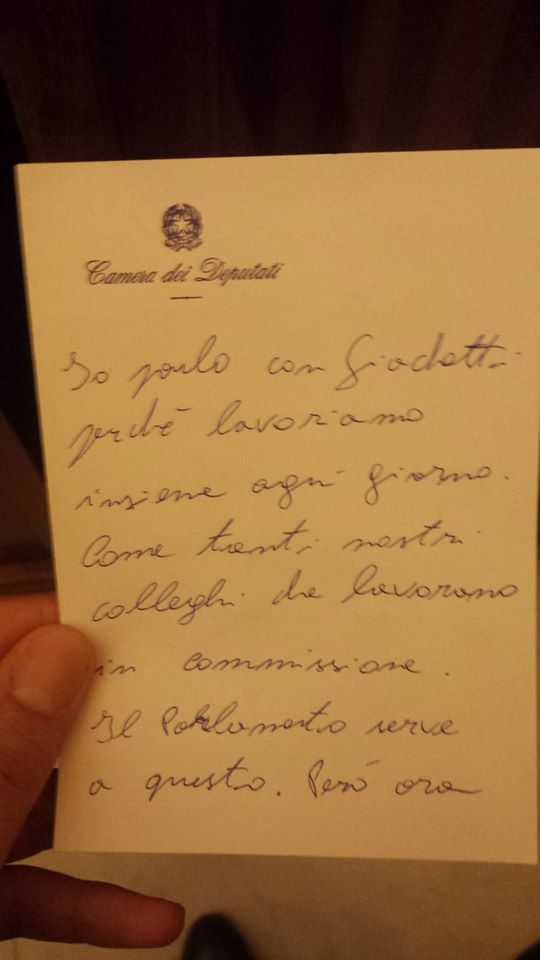 Camera dei Deputati
Io parlo con Giachetti
perché lavoriamo
insieme ogni giorno.
Come tanti nostri
colleghi che lavorano
in commissione.
Il Parlamento serve
a questo. Però ora